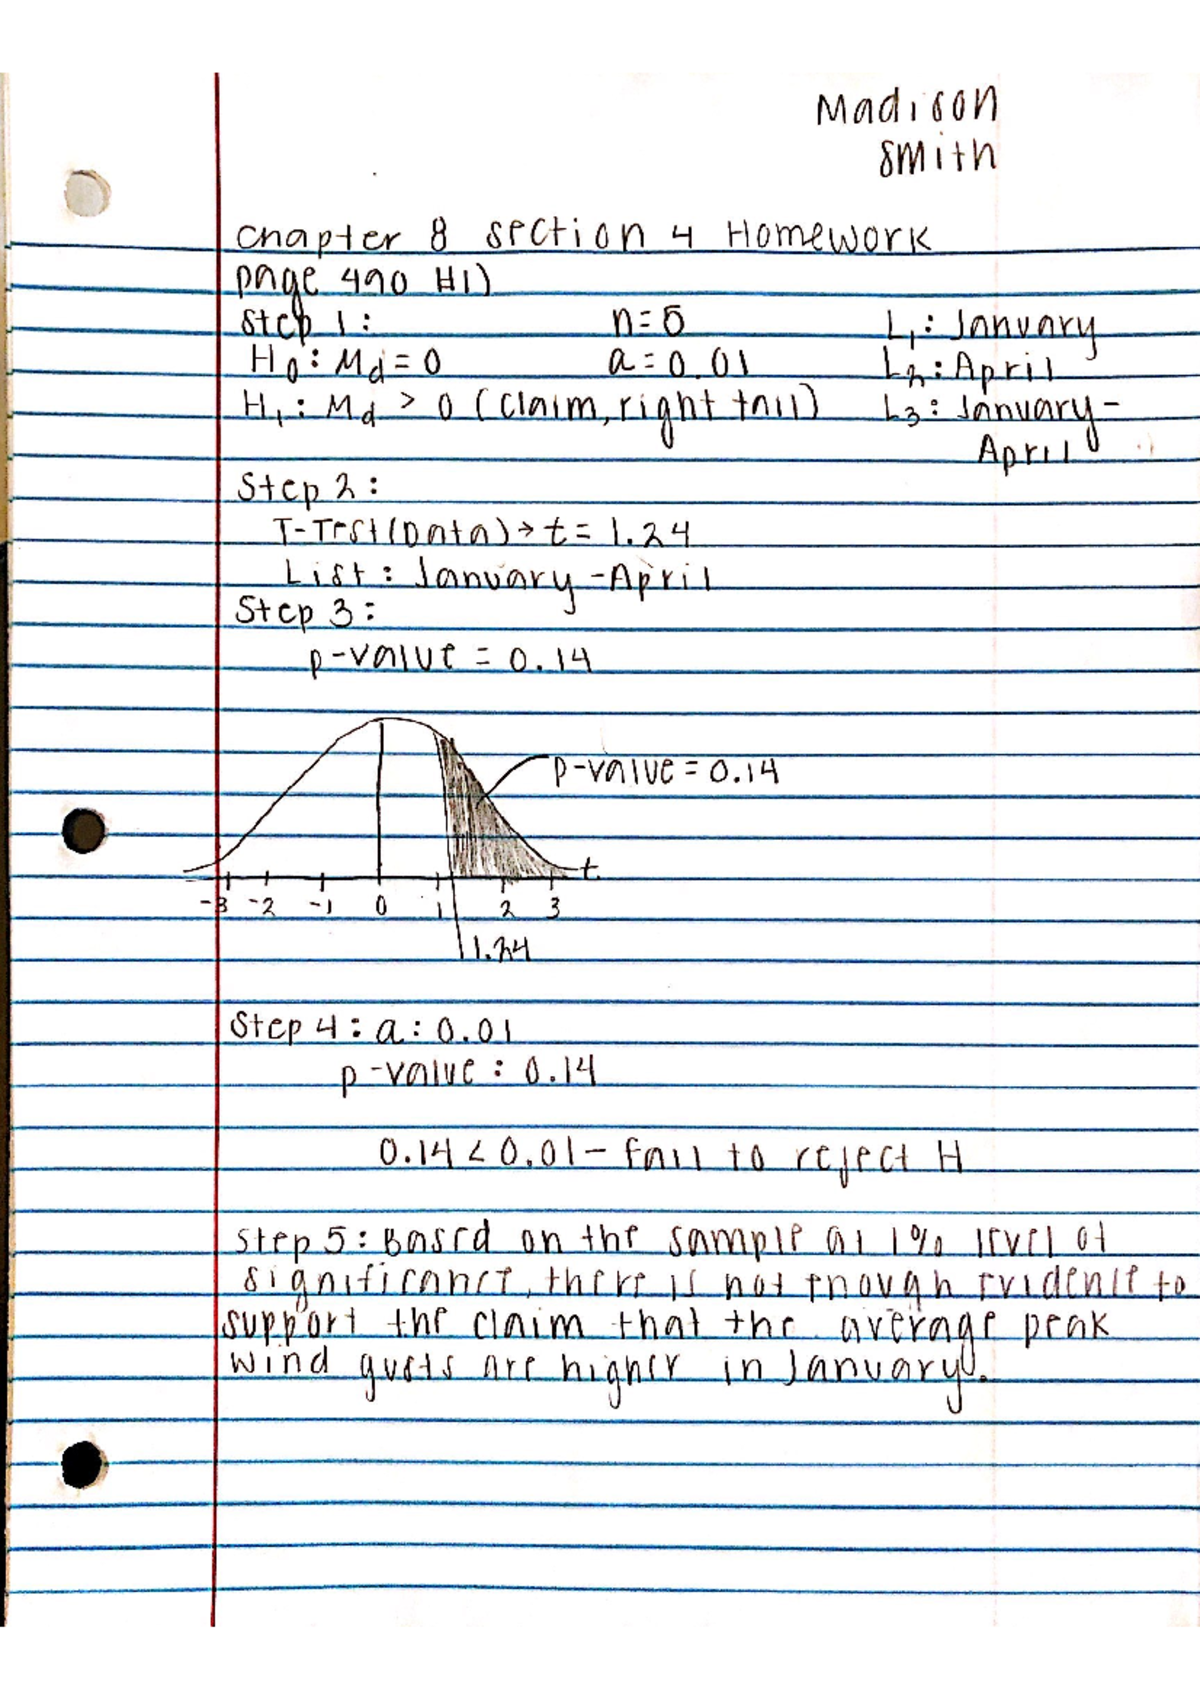 Madison
Smith
Chapter 8 section 4 Homework
page 490 #1)
Step 1: n=5 L1: January
H0: Md = 0 a=0.01 L2: April
H1: Md > 0 (claim, right tail) L3: January-
April
Step 2:
T-Test(Data)→ t = 1.24
List: January-April
Step 3:
p-value = 0.14
p-value = 0.14
t
-3 -2 -1 0 1 2 3
1.24
Step 4: a: 0.01
p-value: 0.14
0.14 < 0.01 - fail to reject H
Step 5: Based on the sample at 1% level of
significance, there is not enough evidence to
support the claim that the average peak
wind gusts are higher in January.